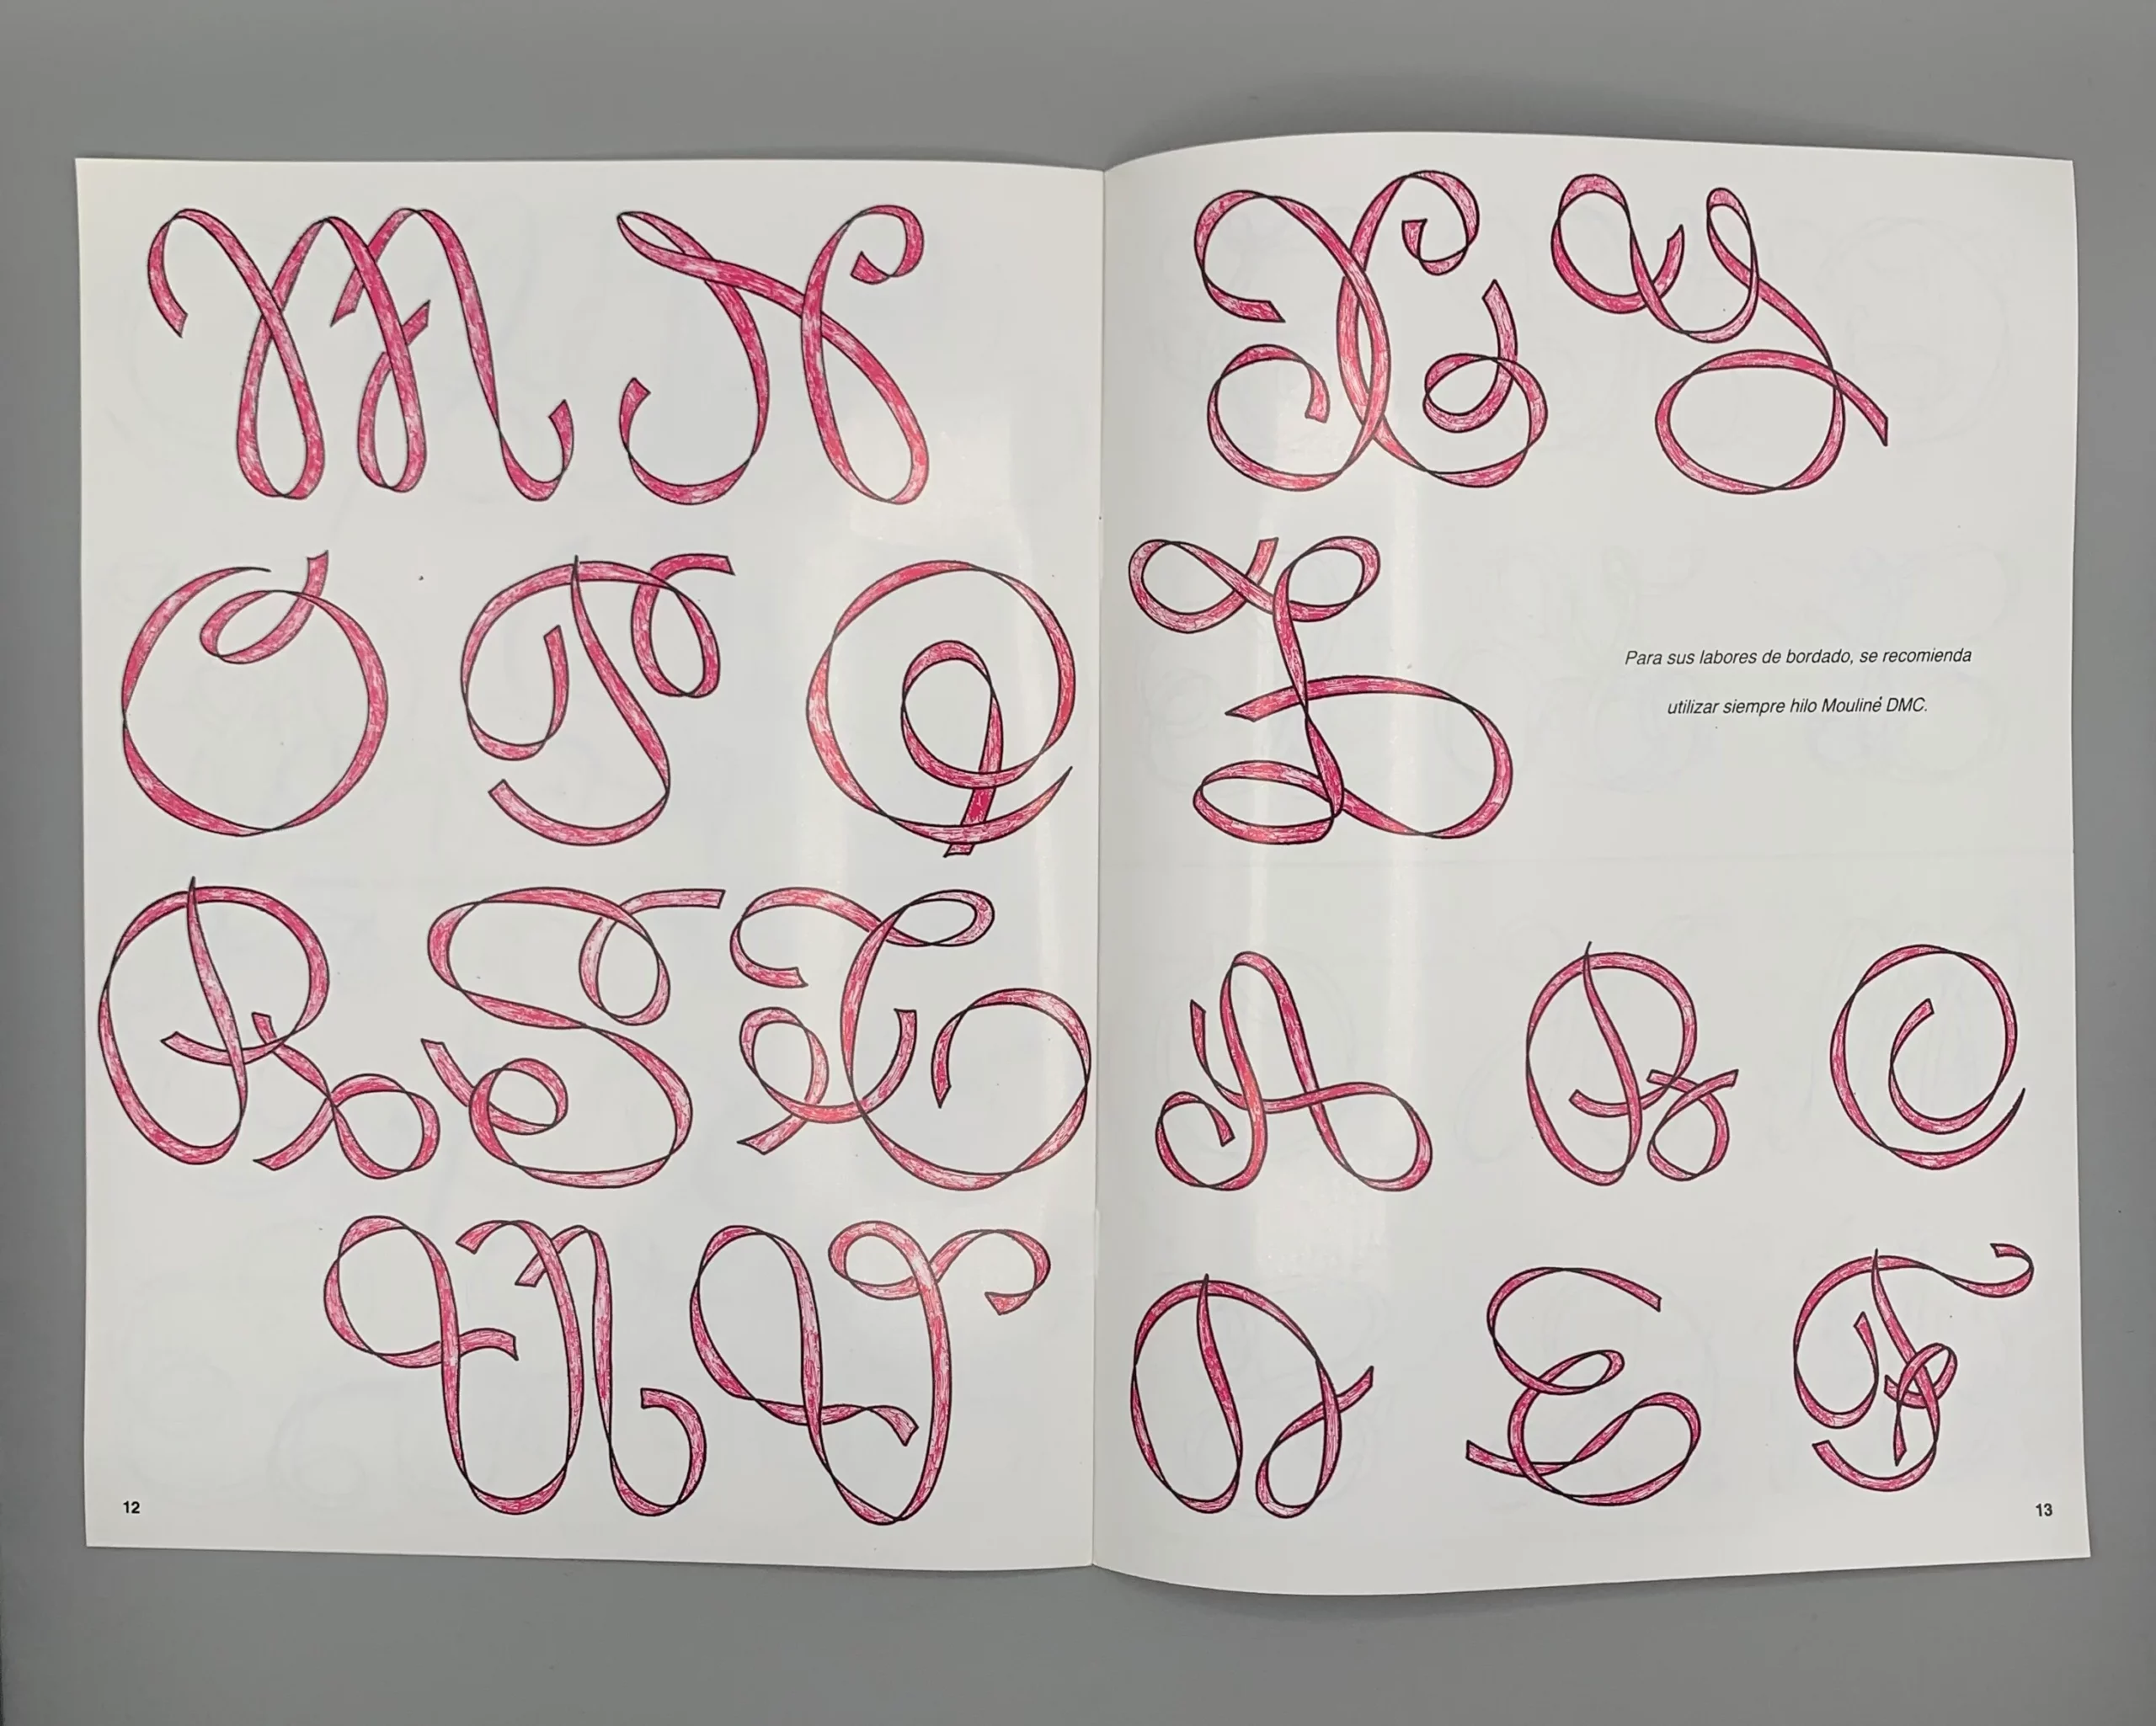 M N
O P Q
R S T
U V
12
X Y
Z
Para sus labores de bordado, se recomienda
utilizar siempre hilo Mouliné DMC.
A B C
D E F
13